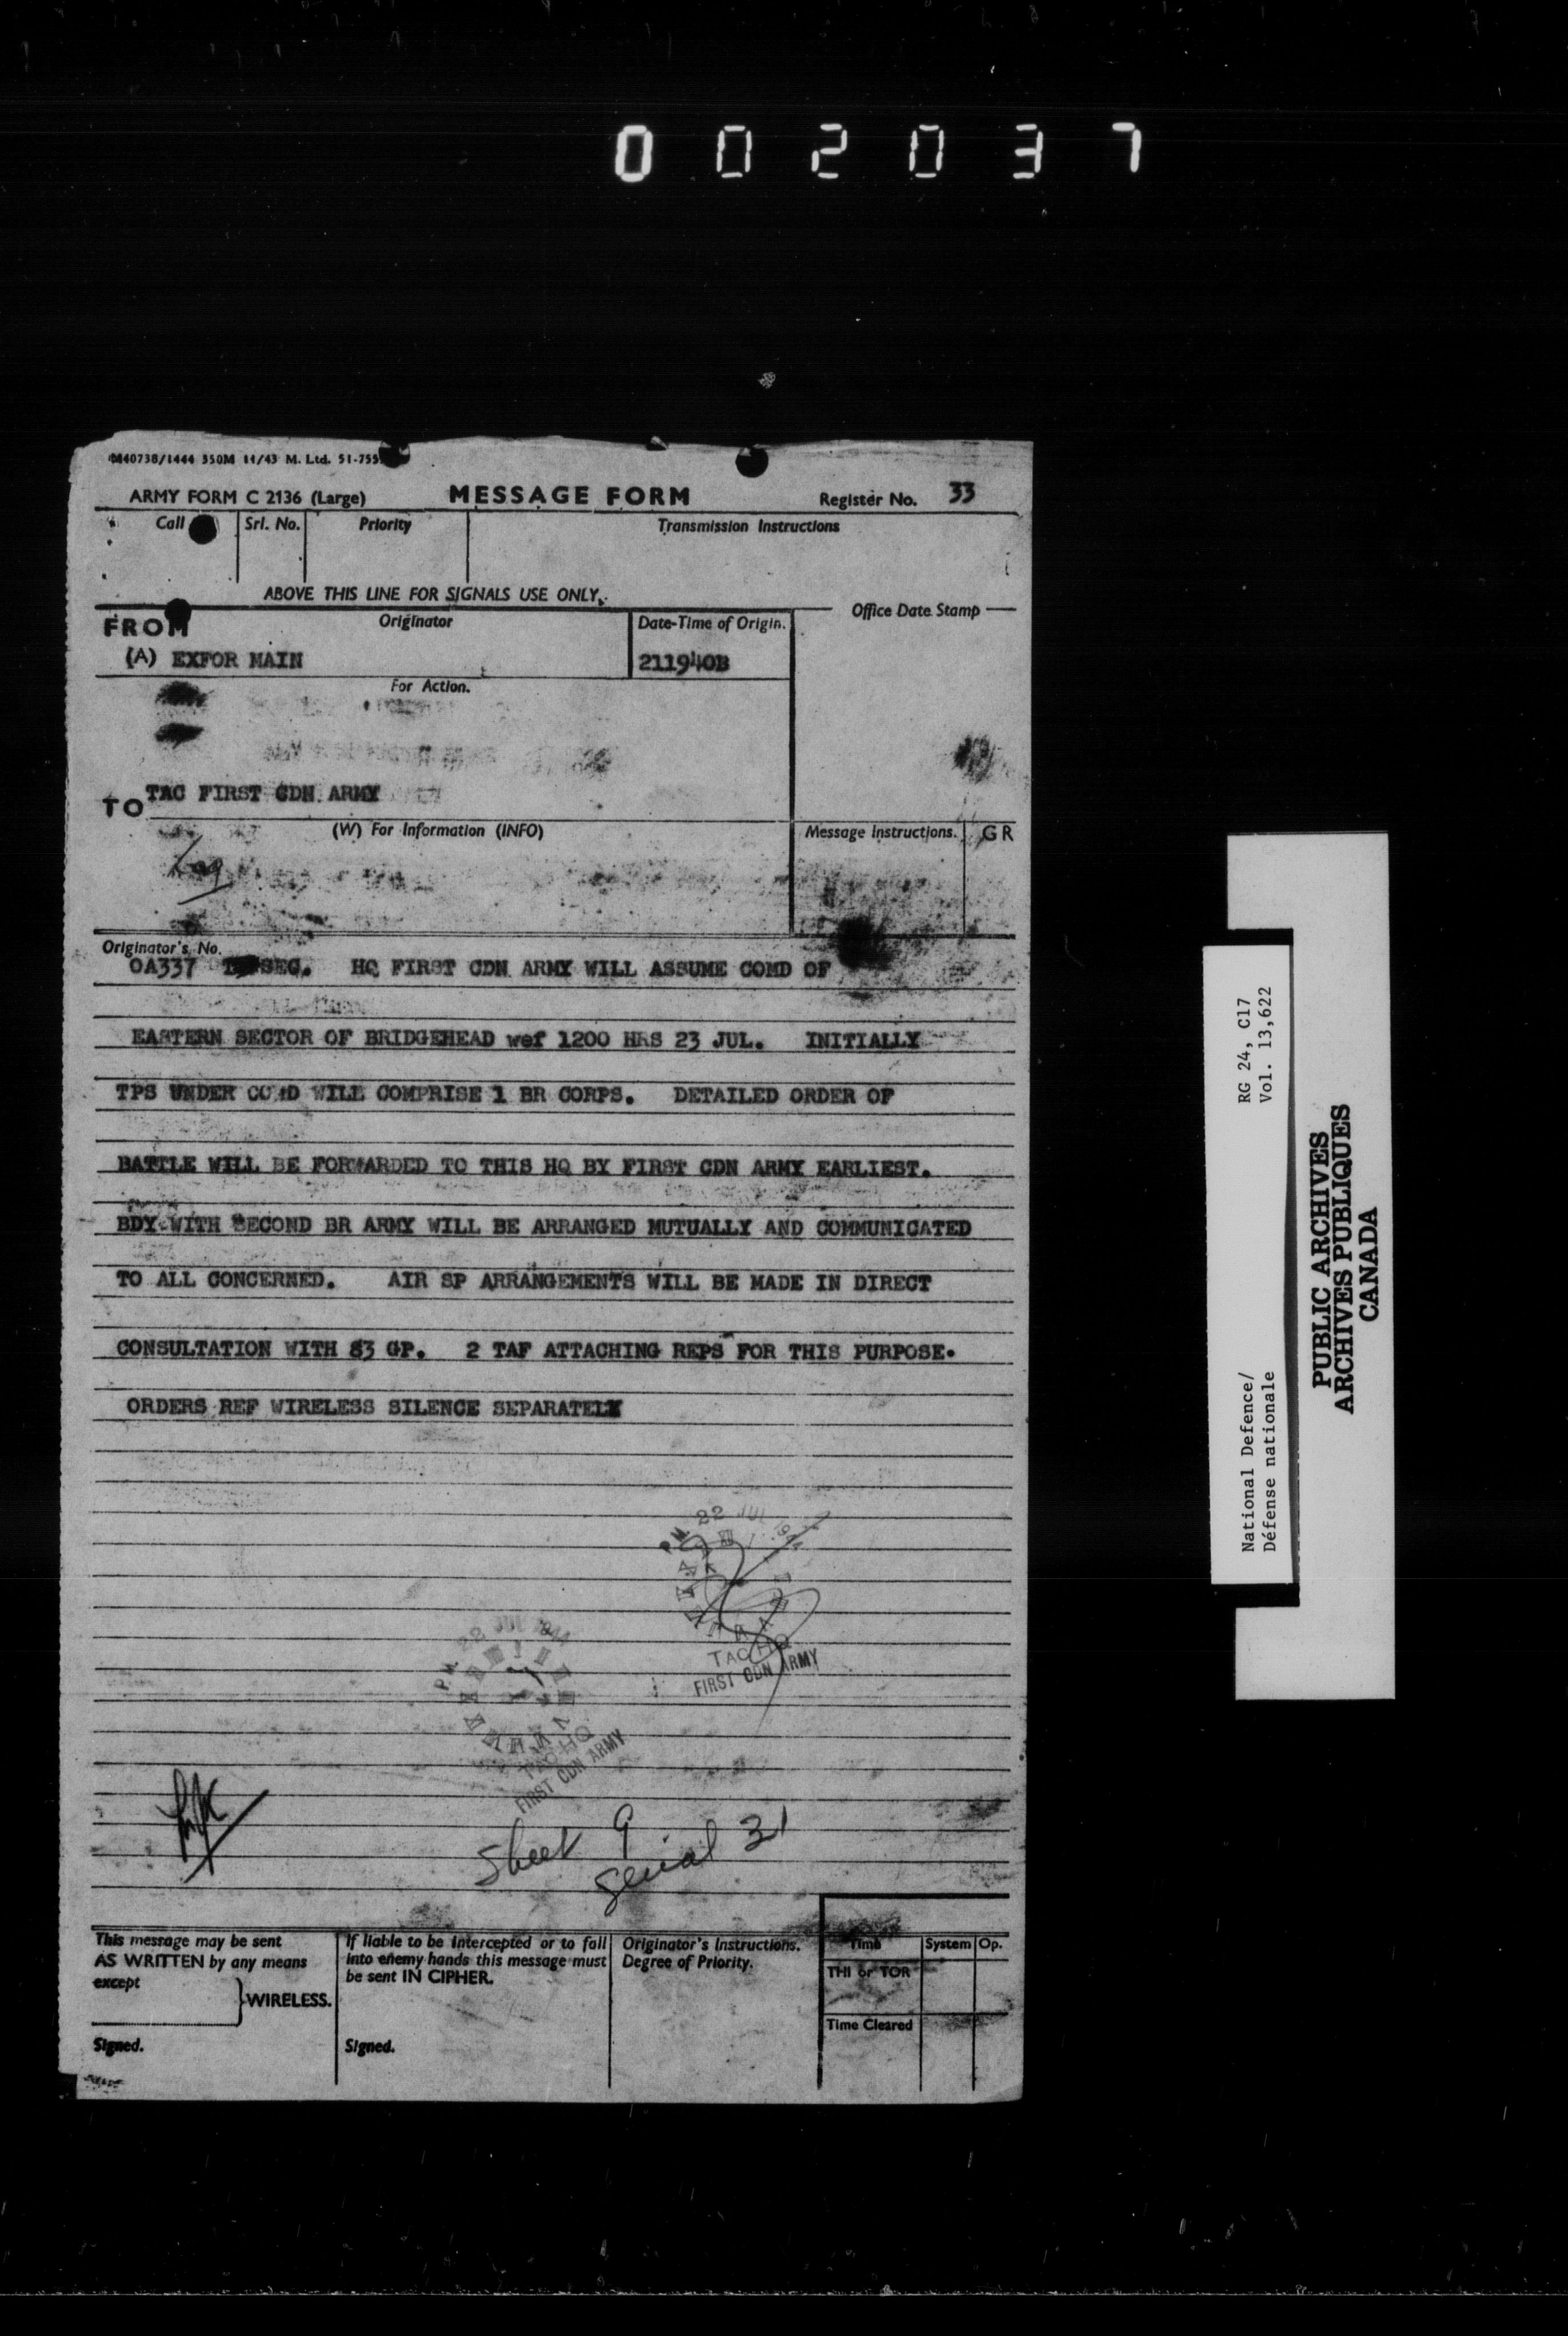 0 0 2 0 3 7
M40738/1444 350M 11/43 M. Ltd. 51-755
ARMY FORM C 2136 (Large) MESSAGE FORM Register No. 33
Call Srl. No. Priority Transmission Instructions
ABOVE THIS LINE FOR SIGNALS USE ONLY.
Office Date Stamp
FROM Originator Date-Time of Origin.
(A) EXFOR MAIN 211940B
For Action.
TO TAC FIRST CDN ARMY
(W) For Information (INFO) Message Instructions. GR
Log
Originator's No.
OA337 SEC. HQ FIRST CDN ARMY WILL ASSUME COMD OF
EASTERN SECTOR OF BRIDGEHEAD wef 1200 HRS 23 JUL. INITIALLY
TPS UNDER COMD WILL COMPRISE 1 BR CORPS. DETAILED ORDER OF
BATTLE WILL BE FORWARDED TO THIS HQ BY FIRST CDN ARMY EARLIEST.
BDY WITH SECOND BR ARMY WILL BE ARRANGED MUTUALLY AND COMMUNICATED
TO ALL CONCERNED. AIR SP ARRANGEMENTS WILL BE MADE IN DIRECT
CONSULTATION WITH 83 GP. 2 TAF ATTACHING REPS FOR THIS PURPOSE.
ORDERS REF WIRELESS SILENCE SEPARATELY
PM 22 JUL 1944
TAC HQ
FIRST CDN ARMY
PM 22 JUL 1944
TAC HQ
FIRST CDN ARMY
Sheet 9
Serial 31
This message may be sent
AS WRITTEN by any means
except
WIRELESS.
Signed.
If liable to be intercepted or to fall
into enemy hands this message must
be sent IN CIPHER.
Signed.
Originator's Instructions.
Degree of Priority.
Time System Op.
THI or TOR
Time Cleared
RG 24, C17
Vol. 13,622
National Defence/
Défense nationale
PUBLIC ARCHIVES
ARCHIVES PUBLIQUES
CANADA